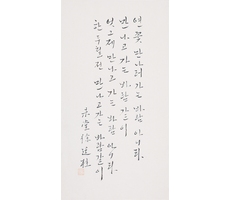 연꽃 만나러 가는 바람 아니라,
만나고 가는 바람 같이
엊그제 만나고 가는 바람 아니라,
한 두 철 전 만나고 가는 바람같이
未堂 徐廷柱